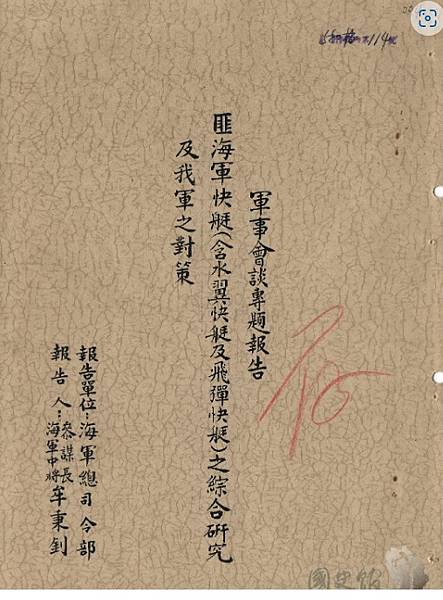 軍事會談專題報告
匪海軍快艇(含水翼快艇及飛彈快艇)之綜合研究
及我軍之對策
報告單位：海軍總司令部
報告人：參謀長
海軍中將
牟秉釗
國史館